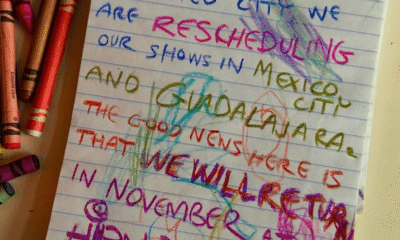 CITY WE
ARE RESCHEDULING
OUR SHOWS IN MEXICO
CITY
AND GUADALAJARA.
THE GOOD NEWS HERE IS
THAT WE WILL RETURN
IN NOVEMBER